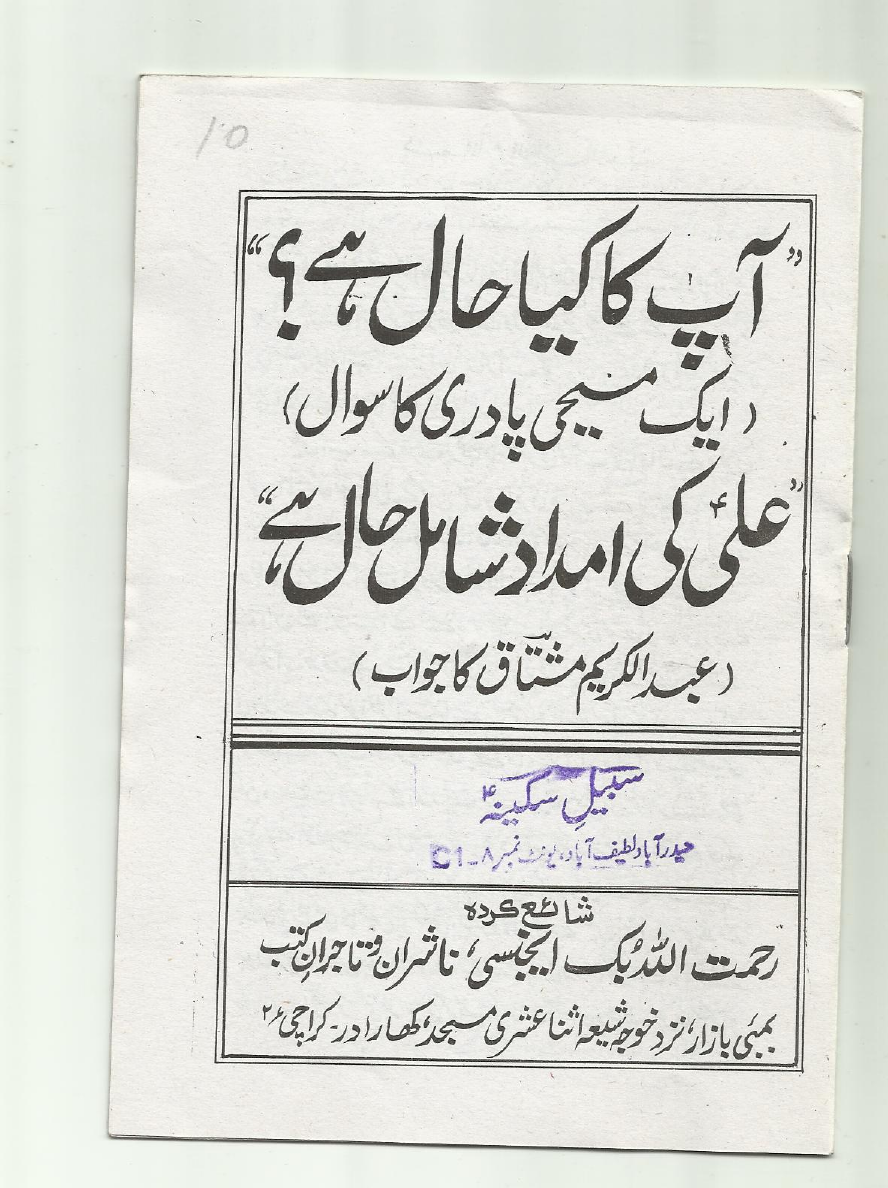 10
”آپ کا کیا حال ہے؟“
(ایک مسیحی پادری کا سوال)
”علیؑ کی امداد شامل حال ہے“
(عبدالکریم مشتاق کا جواب)
سبیلِ سکینہؑ
حیدرآباد لطیف آباد، یونٹ نمبر ۸-C1
شائع کردہ
رحمت اللہ بک ایجنسی، ناشران و تاجرانِ کتب
بمبئی بازار، نزد خوجہ شیعہ اثنا عشری مسجد، کھارادر۔ کراچی ۲